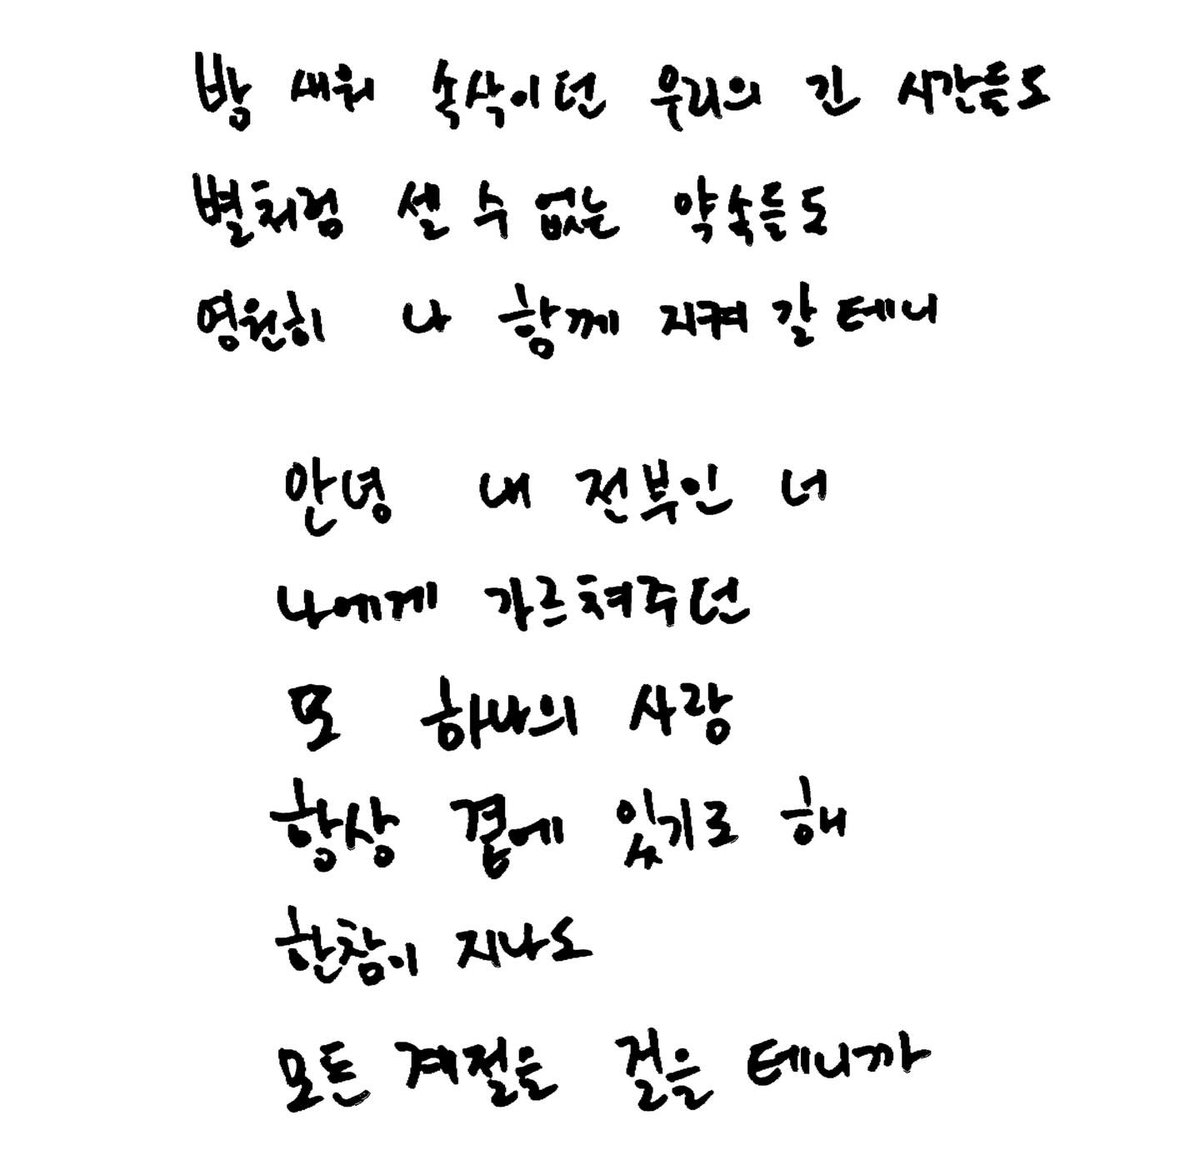 밤 새워 속삭이던 우리의 긴 시간들도
별처럼 셀 수 없는 약속들도
영원히 나 함께 지켜 갈 테니
안녕 내 전부인 너
나에게 가르쳐주던
또 하나의 사랑
항상 곁에 있기로 해
한참이 지나도
모든 계절을 걸을 테니까